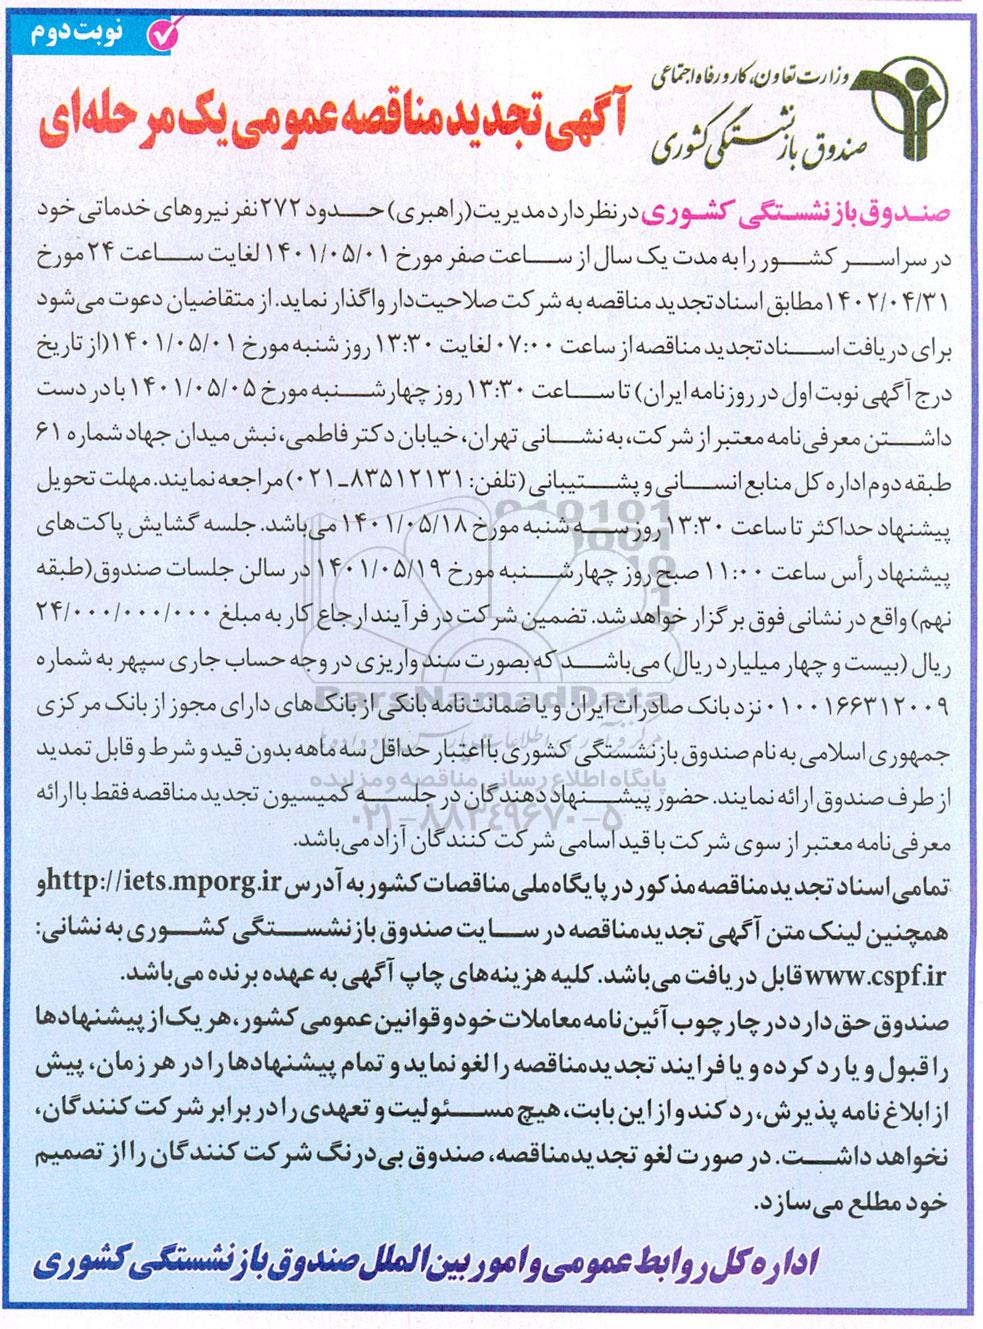 نوبت دوم
وزارت تعاون، کار و رفاه اجتماعی
صندوق بازنشستگی کشوری
آگهی تجدید مناقصه عمومی یک مرحله‌ای
صندوق بازنشستگی کشوری در نظر دارد مدیریت (راهبری) حدود ۲۷۲ نفر نیروهای خدماتی خود
در سراسر کشور را به مدت یک سال از ساعت صفر مورخ ۱۴۰۱/۰۵/۰۱ لغایت ساعت ۲۴ مورخ
۱۴۰۲/۰۴/۳۱ مطابق اسناد تجدید مناقصه به شرکت صلاحیت‌دار واگذار نماید. از متقاضیان دعوت می‌شود
برای دریافت اسناد تجدید مناقصه از ساعت ۰۷:۰۰ لغایت ۱۳:۳۰ روز شنبه مورخ ۱۴۰۱/۰۵/۰۱ (از تاریخ
درج آگهی نوبت اول در روزنامه ایران) تا ساعت ۱۳:۳۰ روز چهارشنبه مورخ ۱۴۰۱/۰۵/۰۵ با در دست
داشتن معرفی‌نامه معتبر از شرکت، به نشانی تهران، خیابان دکتر فاطمی، نبش میدان جهاد شماره ۶۱
طبقه دوم اداره کل منابع انسانی و پشتیبانی (تلفن: ۸۳۵۱۲۱۳۱-۰۲۱) مراجعه نمایند. مهلت تحویل
پیشنهاد حداکثر تا ساعت ۱۳:۳۰ روز سه شنبه مورخ ۱۴۰۱/۰۵/۱۸ می‌باشد. جلسه گشایش پاکت‌های
پیشنهاد رأس ساعت ۱۱:۰۰ صبح روز چهارشنبه مورخ ۱۴۰۱/۰۵/۱۹ در سالن جلسات صندوق (طبقه
نهم) واقع در نشانی فوق برگزار خواهد شد. تضمین شرکت در فرآیند ارجاع کار به مبلغ ۲۴/۰۰۰/۰۰۰/۰۰۰
ریال (بیست و چهار میلیارد ریال) می‌باشد که بصورت سند واریزی در وجه حساب جاری سپهر به شماره
۰۱۰۰۱۶۶۳۱۲۰۰۹ نزد بانک صادرات ایران و یا ضمانت‌نامه بانکی از بانک‌های دارای مجوز از بانک مرکزی
جمهوری اسلامی به نام صندوق بازنشستگی کشوری با اعتبار حداقل سه ماهه بدون قید و شرط و قابل تمدید
از طرف صندوق ارائه نمایند. حضور پیشنهاد دهندگان در جلسه کمیسیون تجدید مناقصه فقط با ارائه
معرفی‌نامه معتبر از سوی شرکت با قید اسامی شرکت کنندگان آزاد می‌باشد.
تمامی اسناد تجدید مناقصه مذکور در پایگاه ملی مناقصات کشور به آدرس http://iets.mporg.ir و
همچنین لینک متن آگهی تجدید مناقصه در سایت صندوق بازنشستگی کشوری به نشانی:
www.cspf.ir قابل دریافت می‌باشد. کلیه هزینه‌های چاپ آگهی به عهده برنده می‌باشد.
صندوق حق دارد در چارچوب آئین‌نامه معاملات خود و قوانین عمومی کشور، هر یک از پیشنهادها
را قبول و یا رد کرده و یا فرایند تجدید مناقصه را لغو نماید و تمام پیشنهادها را در هر زمان، پیش
از ابلاغ نامه پذیرش، رد کند و از این بابت، هیچ مسئولیت و تعهدی را در برابر شرکت کنندگان،
نخواهد داشت. در صورت لغو تجدید مناقصه، صندوق بی‌درنگ شرکت کنندگان را از تصمیم
خود مطلع می‌سازد.
اداره کل روابط عمومی و امور بین‌الملل صندوق بازنشستگی کشوری
ParsNamadData
پایگاه اطلاع رسانی مناقصه و مزایده
۰۲۱-۸۸۳۴۹۶۷۰-۵